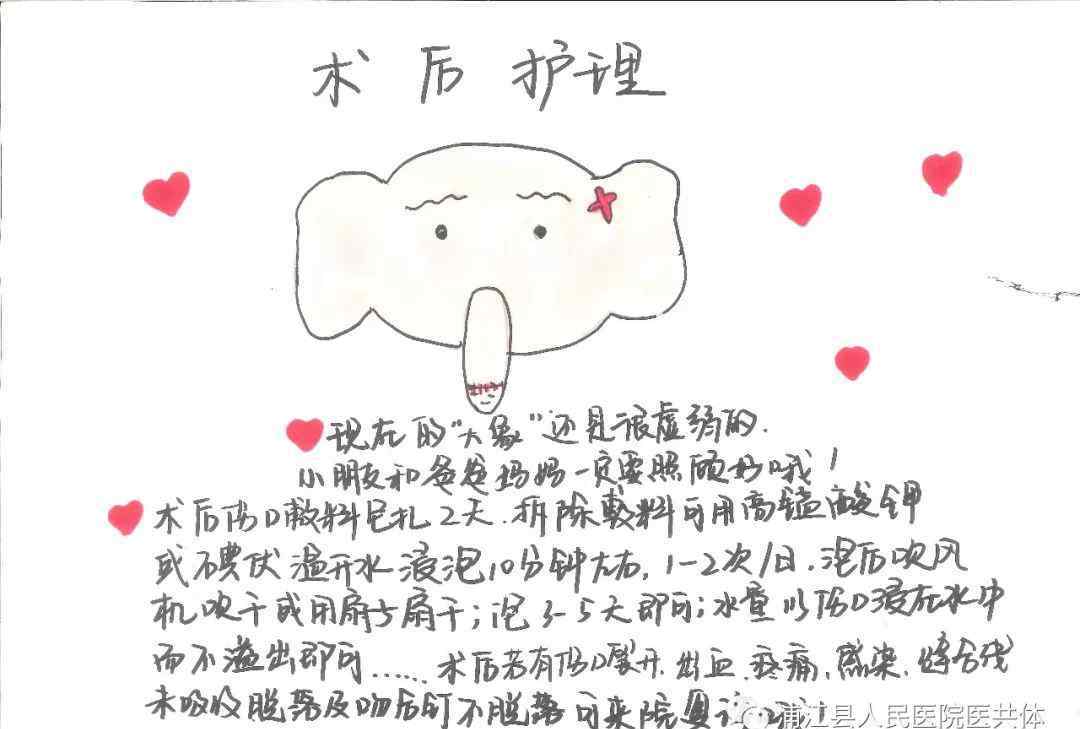 术后护理
现在的“大象”还是很虚弱的.
小朋友和爸爸妈妈一定要照顾好哦!
术后伤口敷料包扎2天.拆除敷料可用高锰酸钾
或碘伏温开水浸泡10分钟左右,1-2次/日.泡后吹风
机吹干或用扇子扇干;泡3-5天即可;水量以伤口浸在水中
而不溢出即可……术后若有伤口裂开.出血.疼痛.感染.缝合线
未吸收脱落及吻合钉不脱落可来院复
浦江县人民医院医共体